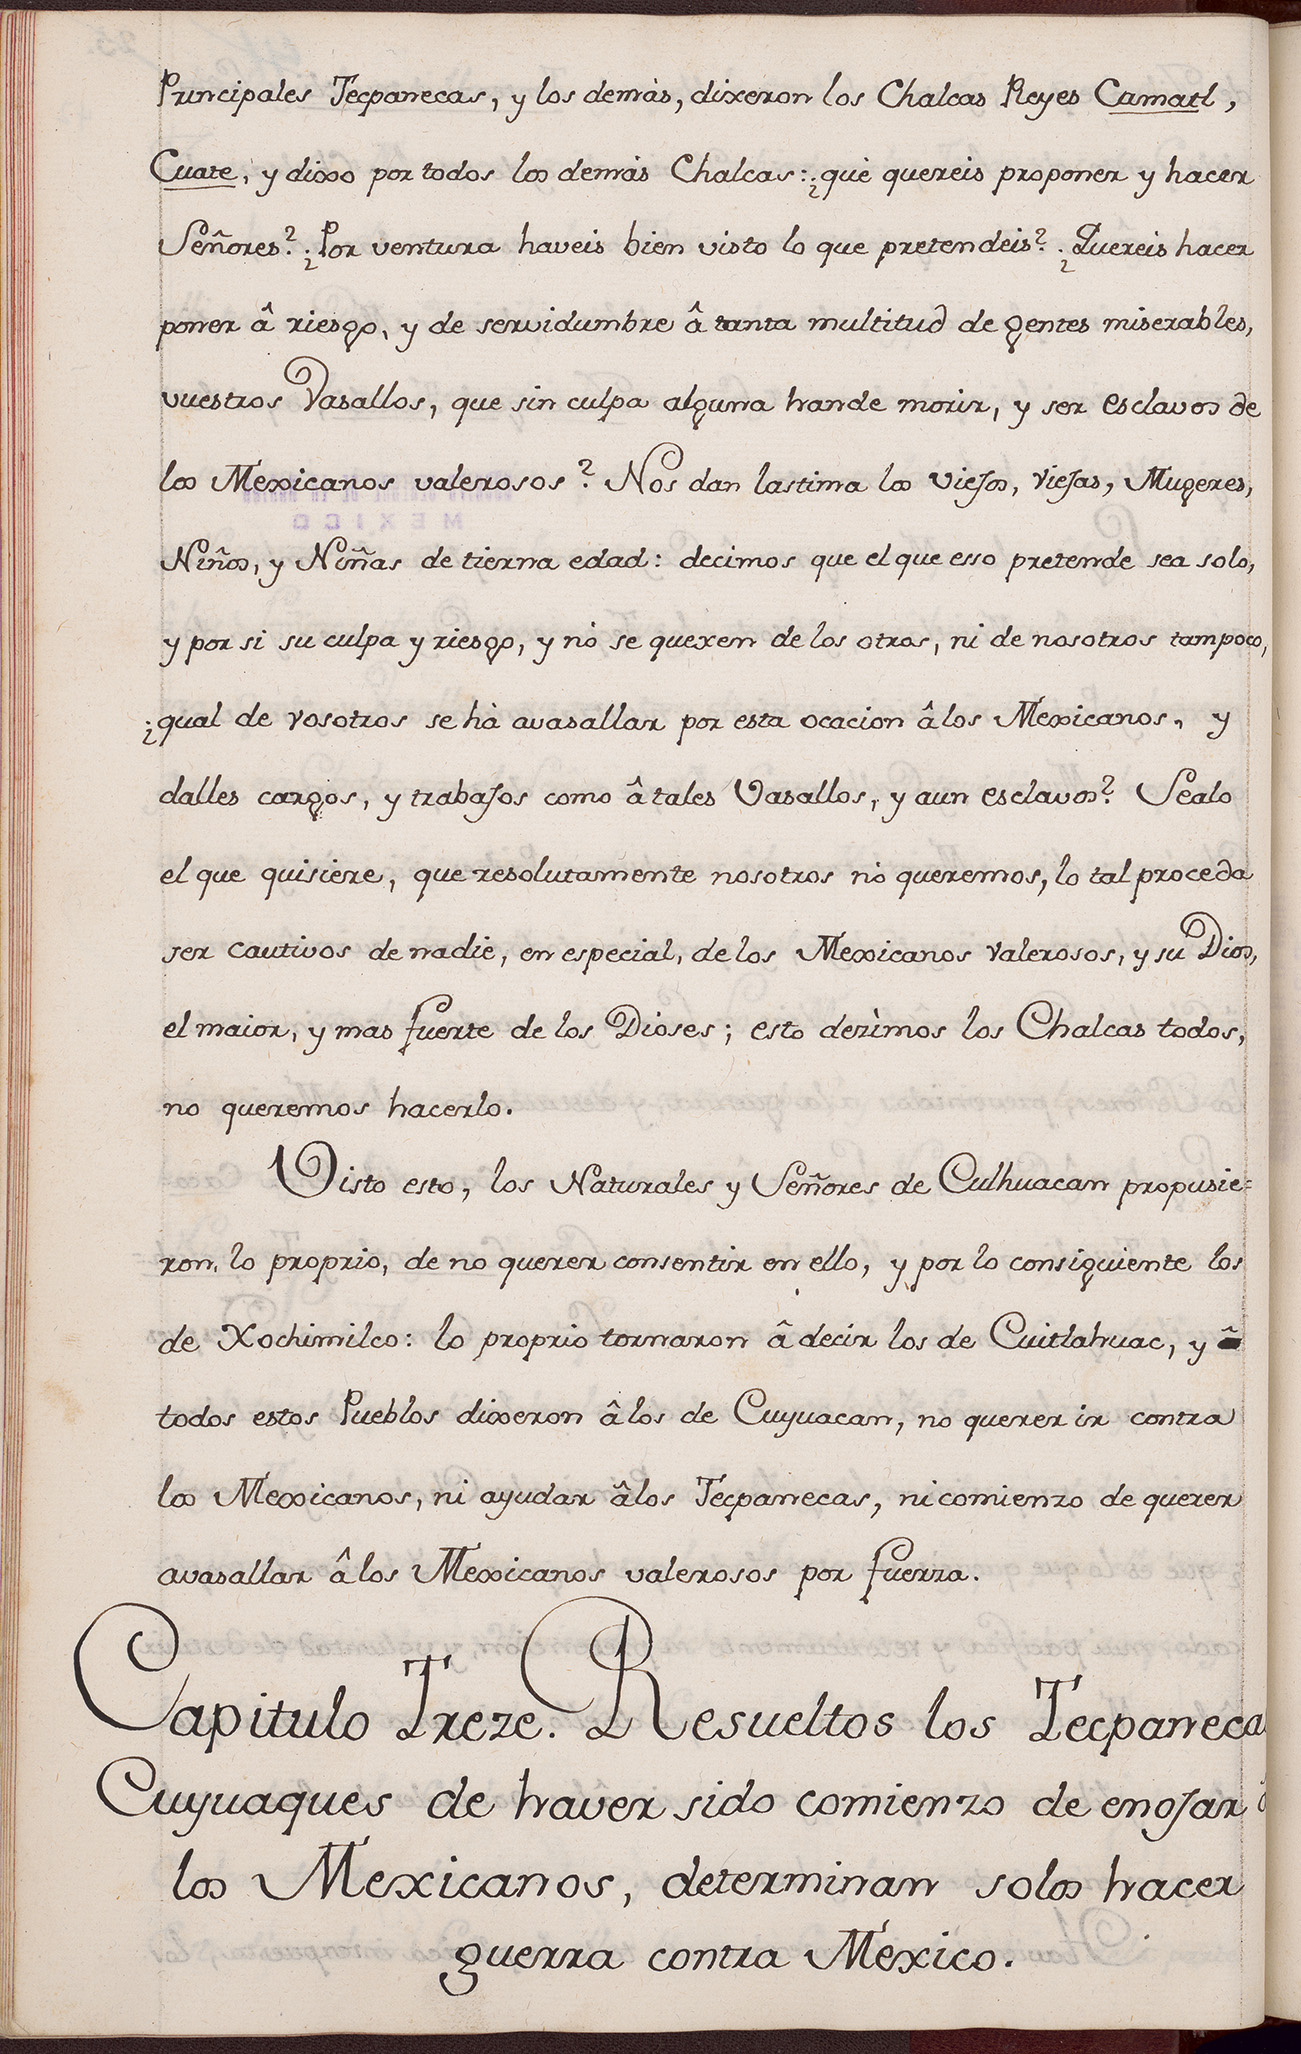 Principales Tecpanecas, y los demàs, dixeron los Chalcas Reyes Camatl,
Cuate, y dixo por todos los demàs Chalcas: ¿què quereis proponer y hacer
Señores? ¿Por ventura haveis bien visto lo que pretendeis? ¿Quereis hacer
poner â riesgo, y de servidumbre â tanta multitud de gentes miserables,
vuestros Vasallos, que sin culpa alguna hande morir, y ser esclavos de
los Mexicanos valerosos? Nos dan lastima los Viejos, Viejas, Mugeres,
MEXICO
Niños, y Niñas de tierna edad: decimos que el que esso pretende sea solo,
y por si su culpa y riesgo, y nò se quexen de los otros, ni de nosotros tampoco,
¿qual de vosotros se hà avasallar por esta ocacion â los Mexicanos, y
dalles cargos, y trabajos como â tales Vasallos, y aun esclavos? Sealo
el que quisiere, que resolutamente nosotros nò queremos, lo tal proceda
ser cautivos de nadie, en especial, de los Mexicanos valerosos, y su Dios,
el maior, y mas fuerte de los Dioses; esto dezimos los Chalcas todos,
no queremos hacerlo.
Visto esto, los Naturales y Señores de Culhuacan propusie=
ron, lo proprio, de no querer consentir en ello, y por lo consiguiente los
de Xochimilco: lo proprio tornaron â decir los de Cuitlahuac, y â
todos estos Pueblos dixeron â los de Cuyuacan, no querer ir contra
los Mexicanos, ni ayudar â los Tecpanecas, ni comienzo de querer
avasallar â los Mexicanos valerosos por fuerza.
Capitulo Treze. Resueltos los Tecpaneca
Cuyuaques de haver sido comienzo de enojar
los Mexicanos, determinan solos hacer
guerra contra Mexico.